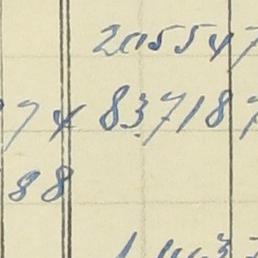 205547
74 837187
88